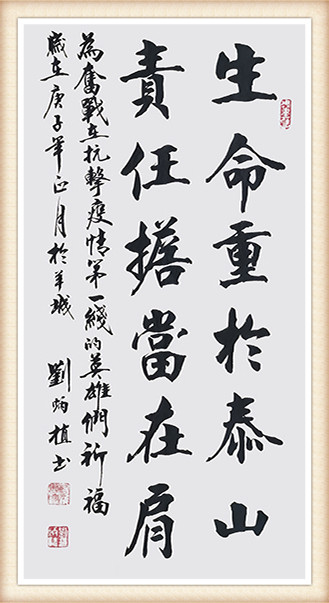 生命重於泰山
責任擔當在肩
為奮戰在抗擊疫情第一綫的英雄們祈福
歲在庚子年正月於羊城
劉炳植書